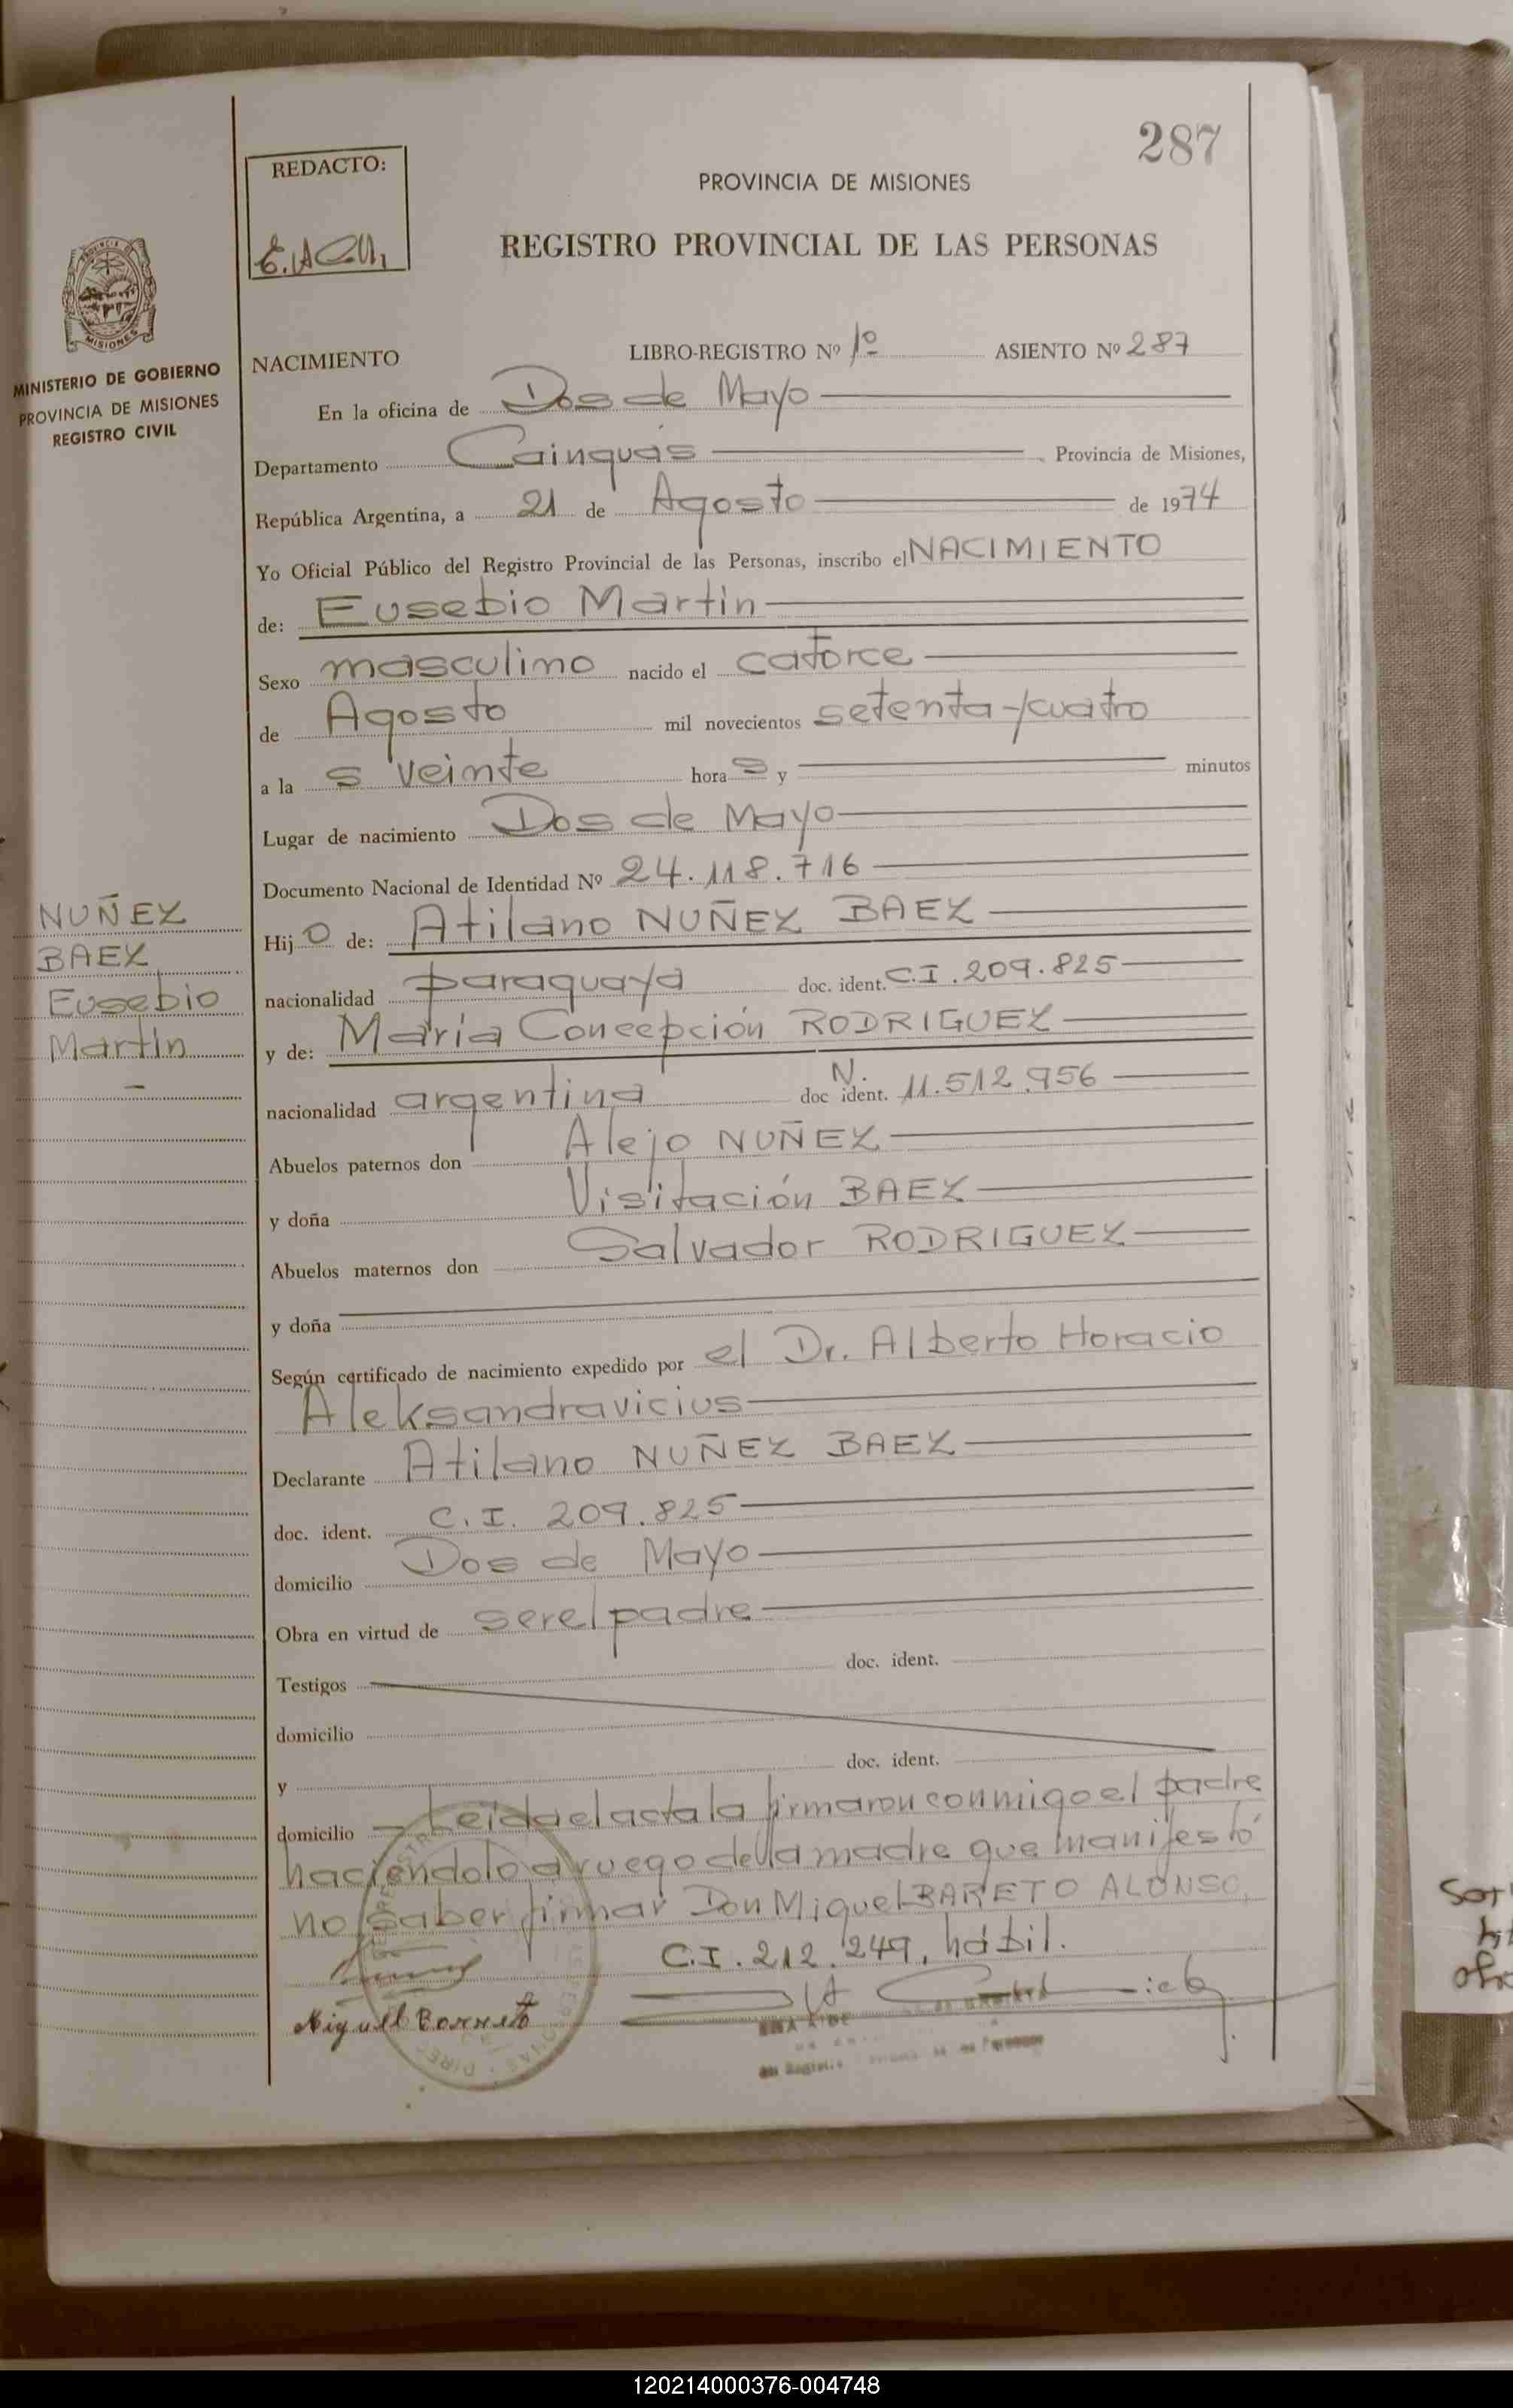 287
REDACTO:
PROVINCIA DE MISIONES
REGISTRO PROVINCIAL DE LAS PERSONAS
MISIONES
MINISTERIO DE GOBIERNO
PROVINCIA DE MISIONES
REGISTRO CIVIL
NACIMIENTO LIBRO-REGISTRO Nº 1º ASIENTO Nº 287
En la oficina de Dos de Mayo
Departamento Cainguás Provincia de Misiones,
República Argentina, a 21 de Agosto de 1974
Yo Oficial Público del Registro Provincial de las Personas, inscribo el NACIMIENTO
de: Eusebio Martin
Sexo masculino nacido el catorce
de Agosto mil novecientos setenta y cuatro
a la s veinte hora s y minutos
Lugar de nacimiento Dos de Mayo
Documento Nacional de Identidad Nº 24.118.716
NUÑEZ
BAEZ
Eusebio
Martin
Hij o de: Atilano NUÑEZ BAEZ
nacionalidad paraguaya doc. ident. C.I. 209.825
y de: María Concepción RODRIGUEZ
nacionalidad argentina doc N. ident. 11.512.956
Abuelos paternos don Alejo NUÑEZ
y doña Visitación BAEZ
Abuelos maternos don Salvador RODRIGUEZ
y doña
Según certificado de nacimiento expedido por el Dr. Alberto Horacio
Aleksandravicius
Declarante Atilano NUÑEZ BAEZ
doc. ident. C.I. 209.825
domicilio Dos de Mayo
Obra en virtud de ser el padre
Testigos doc. ident.
domicilio
y doc. ident.
domicilio Leida el acta la firmaron conmigo el padre
haciendolo a ruego de la madre que manifestó
no saber firmar Don Miguel BARETO ALONSO,
C.I. 212.249, hábil.
Miguel Barreto
120214000376-004748